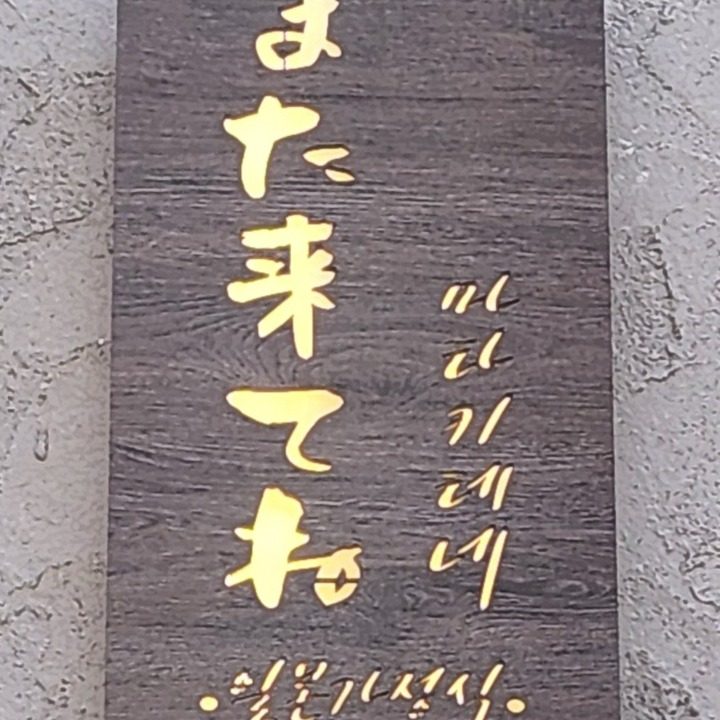 また来てね
마타키테네
일본가정식